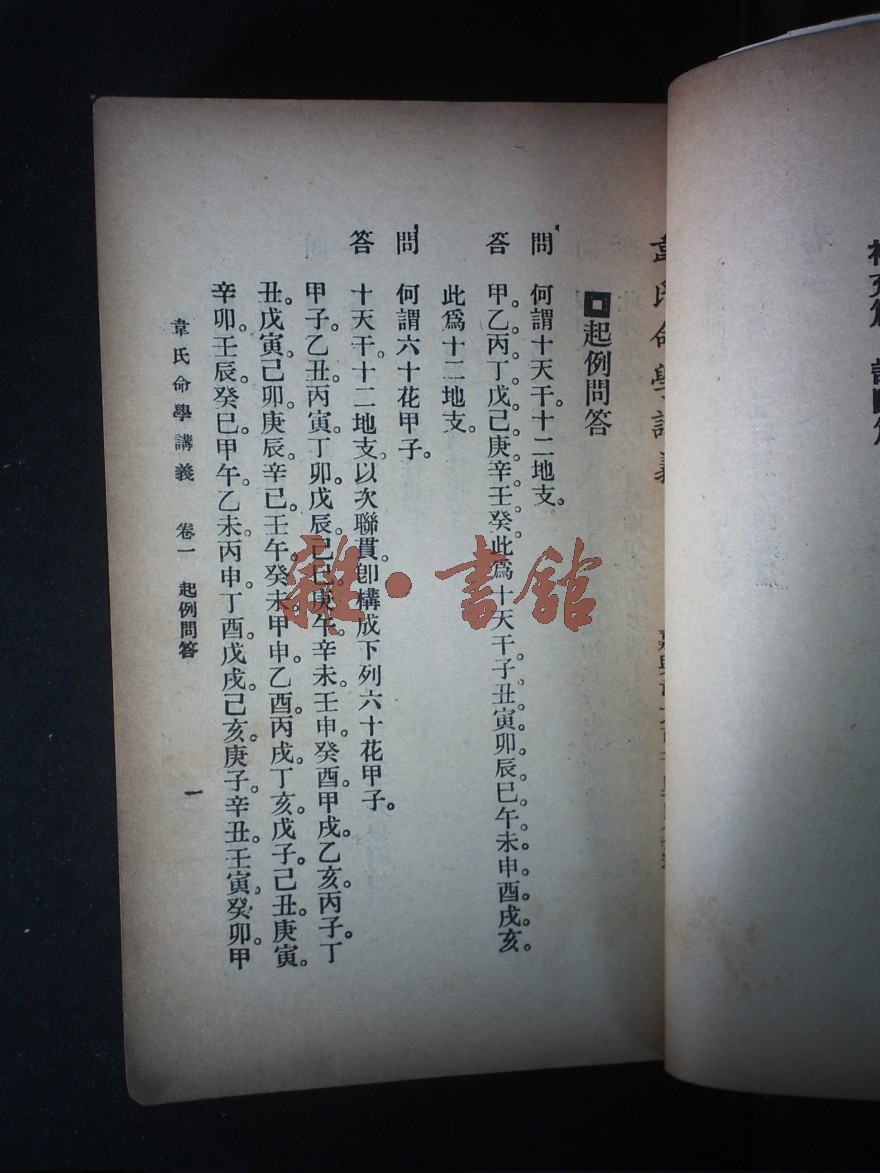 韋氏命學講義
起例問答
問 何謂十天干十二地支。
答 甲。乙。丙。丁。戊。己。庚。辛。壬。癸。此爲十天干。子。丑。寅。卯。辰。巳。午。未。申。酉。戌。亥。
此爲十二地支。
問 何謂六十花甲子。
答 十天干。十二地支。以次聯貫。卽構成下列六十花甲子。
甲子。乙丑。丙寅。丁卯。戊辰。己巳。庚午。辛未。壬申。癸酉。甲戌。乙亥。丙子。丁
丑。戊寅。己卯。庚辰。辛巳。壬午。癸未。甲申。乙酉。丙戌。丁亥。戊子。己丑。庚寅。
辛卯。壬辰。癸巳。甲午。乙未。丙申。丁酉。戊戌。己亥。庚子。辛丑。壬寅。癸卯。甲
韋氏命學講義 卷一 起例問答 一
雜·書館